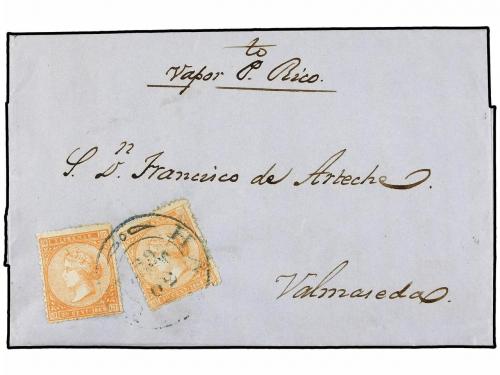 to
Vapor P. Rico.
S. Dn. Francisco de Arteche.
Valmaseda.